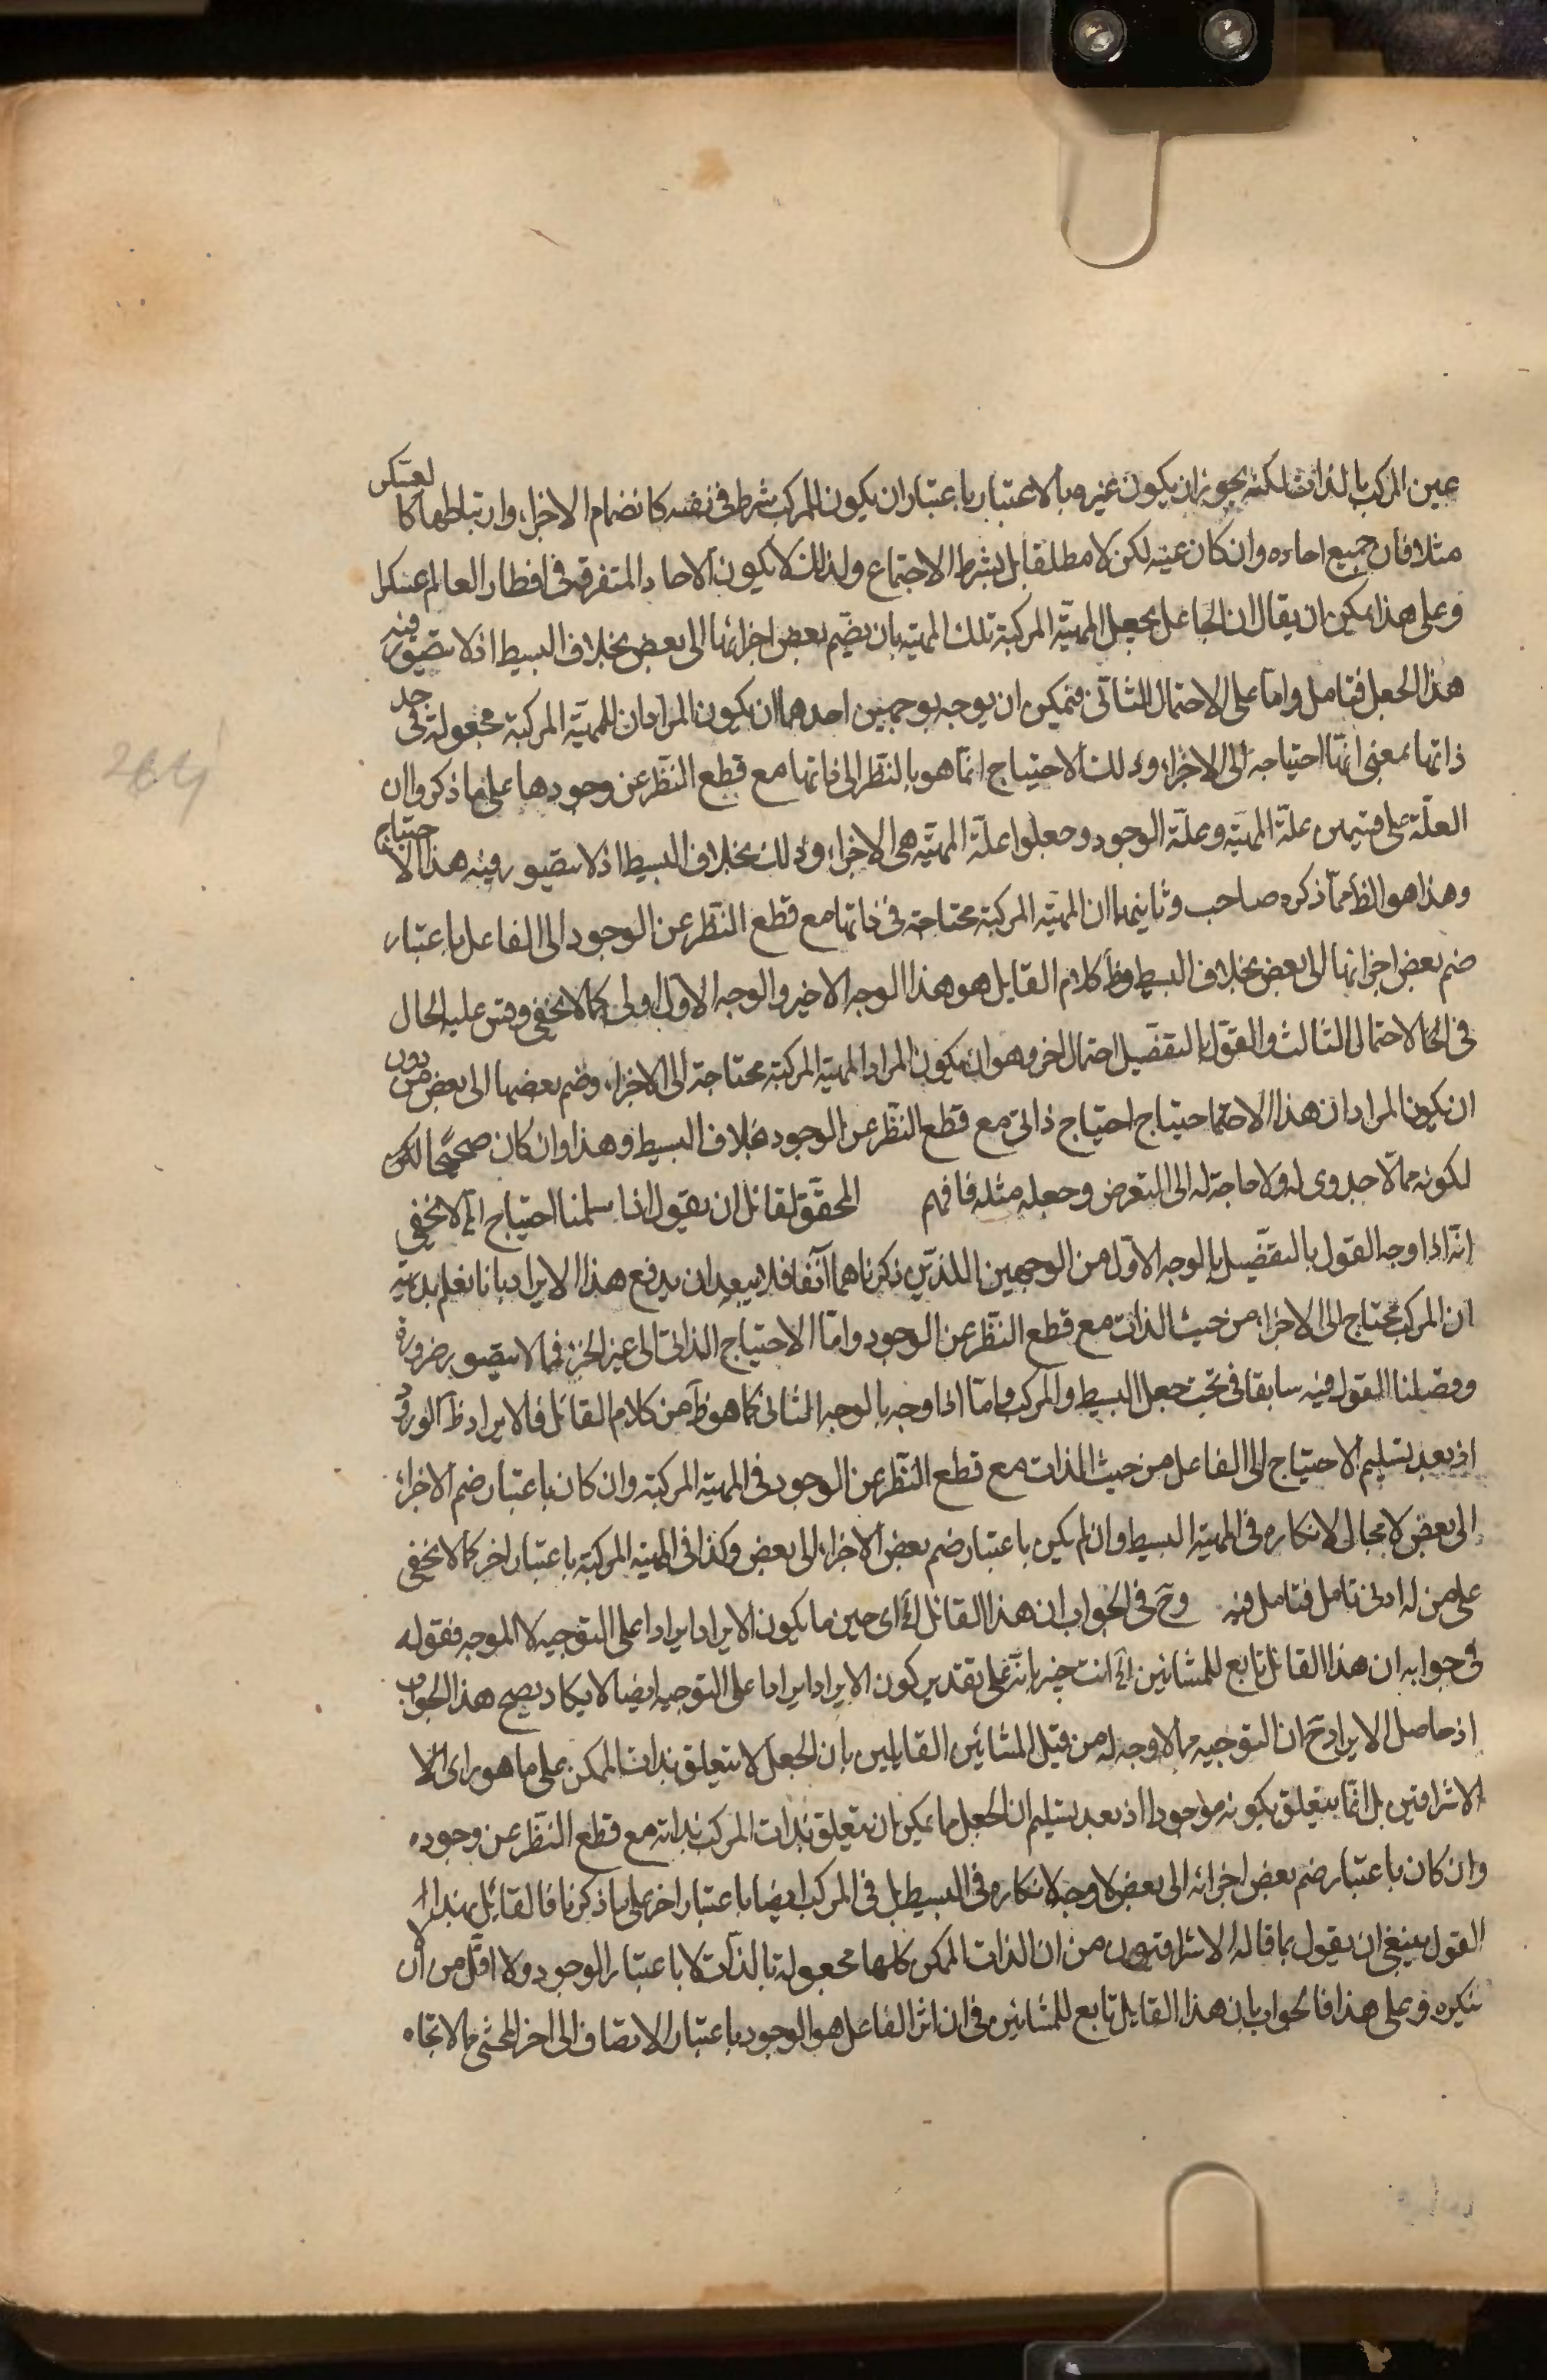 عين المركب بالذات لكنه يجوز ان يكون غيره بالاعتبار باعتبار ان يكون للمركب شرط في نفسه كانضمام الاجزاء وارتباطها كالعسكر
مثلا فان جميع احاده وان كان عينه لكن لا مطلقا بل بشرط الاجتماع ولذلك لا يكون الاحاد المتفرقة في اقطار العالم عسكرا
وعلى هذا يمكن ان يقال ان الجاعل يجعل المهيّة المركبة تلك المهية بان يضم بعض اجزائها الى بعض بخلاف البسيط اذ لا يتصور فيه
هذا الجعل فتامل واما على الاحتمال الثاني فيمكن ان يوجه بوجهين احدهما ان يكون المراد ان للمهيّة المركبة مجعولة في حد
ذاتها بمعنى انها احتياجه الى الاجزاء وذلك الاحتياج انما هو بالنظر الى ذاتها مع قطع النظر عن وجودها على ما ذكروا ان
العلّة على قسمين علّة المهيّة وعلّة الوجود وجعلوا علّة المهيّة هي الاجزاء وذلك بخلاف البسيط اذ لا يتصور فيه هذا الاحتياج
وهذا هو الظ مما ذكره صاحب وثانيهما ان المهيّة المركبة محتاجة في ذاتها مع قطع النظر عن الوجود الى الفاعل باعتبار
ضم بعض اجزائها الى بعض بخلاف البسيط وظ كلام القايل هو هذا الوجه الاخير والوجه الاول اولى كما لا يخفى وقس عليه الحال
في الاحتمال الثالث والقول بالتفصيل احتمال اخر وهو ان يكون المراد المهية المركبة محتاجة الى الاجزاء وضم بعضها الى بعض من دون
ان يكون المراد ان هذا الاحتياج احتياج ذاتي مع قطع النظر عن الوجود بخلاف البسيط وهذا وان كان صحيحا لكن
لكونه مما لا جدوى له ولا حاجة له الى التعرض وجعله مثله فافهم المحقق لقائل ان يقول اذا سلمنا احتياج آه لا يخفى
انه اذا وجه القول بالتفصيل بالوجه الاول من الوجهين اللذين ذكرناهما آنفا فلا يبعد ان يدفع هذا الايراد بانا نعلم بديهة
ان المركب محتاج الى الاجزاء من حيث الذات مع قطع النظر عن الوجود واما الاحتياج الذاتي الى غير الجزء فمما لا يتصور ضرورة
وفصلنا القول فيه سابقا في بحث جعل البسيط والمركب واما اذا وجه بالوجه الثاني كما هو ظ من كلام القائل فالايراد ظ الورود
اذ بعد تسليم الاحتياج الى الفاعل من حيث الذات مع قطع النظر عن الوجود في المهية المركبة وان كان باعتبار ضم الاجزاء
الى بعض لا مجال لانكاره في المهية البسيط وان لم يكن باعتبار ضم بعض الاجزاء الى بعض وكذا في المهية المركبة باعتبار اخر كما لا يخفى
على من له ادنى تامل فتامل فيه وح في الجواب ان هذا القائل آه اي حين ما يكون الايراد ايرادا على التوجيه لا الموجه فقوله
في جوابه ان هذا القائل تابع للمشائين آه انت خبير بانه على تقدير كون الايراد ايرادا على التوجيه ايضا لا يكاد يصح هذا الجواب
اذ حاصل الايراد ح ان التوجيه مما لا وجه له من قبل المشائين القايلين بان الجعل لا يتعلق بذات الممكن على ما هو راى الا
الاشراقيين بل انما يتعلق بكونه موجودا اذ بعد تسليم ان الجعل مما يمكن ان يتعلق بذات المركب بذاته مع قطع النظر عن وجوده
وان كان باعتبار ضم بعض اجزائه الى بعض لا وجه لانكاره في البسيط بل في المركب ايضا باعتبار اخر على ما ذكرنا فالقائل بهذا
القول ينبغي ان يقول بما قاله الاشراقيون من ان الذات الممكن كلها مجعولة بالذات لا باعتبار الوجود ولا اقل من ان لا
ينكره وعلى هذا فالجواب بان هذا القايل تابع للمشائين في ان اثر الفاعل هو الوجود باعتبار الاتصاف الى اخر المحشي مما لا اتجاه